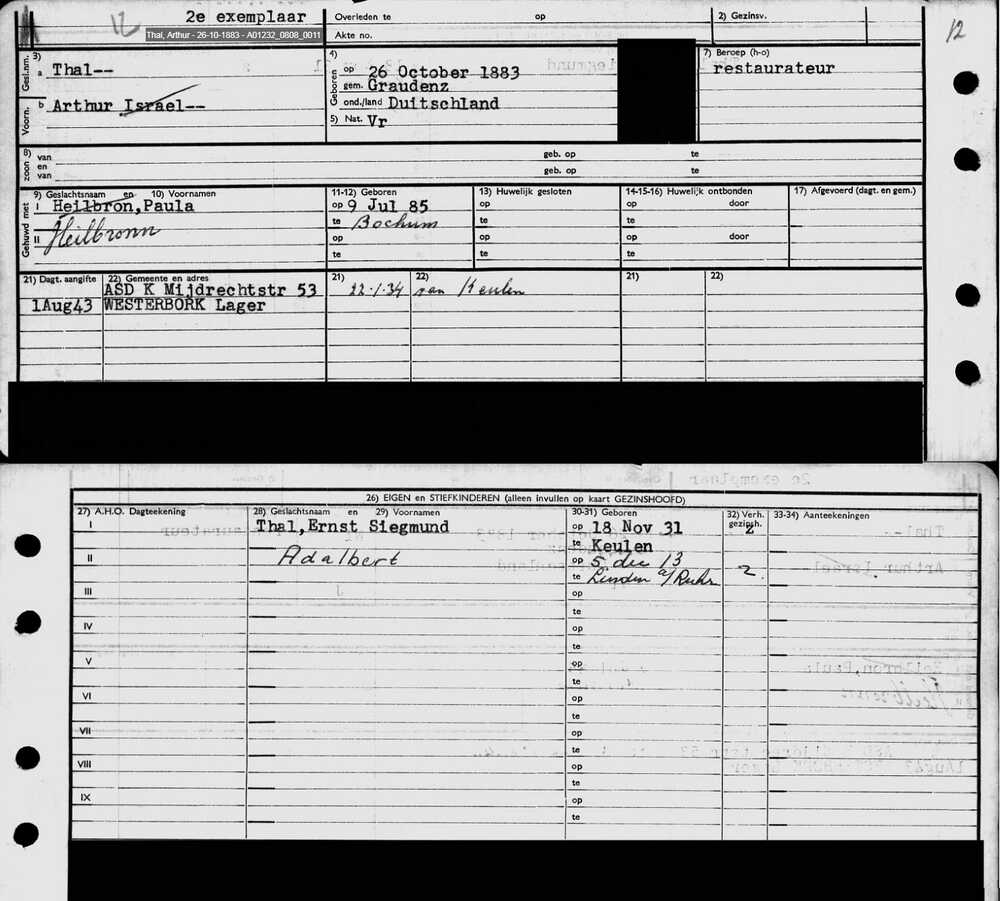 2e exemplaar
12
12
Thal, Arthur - 26-10-1883 - A01232_0808_0011
Overleden te op
Akte no.
2) Gezinsv.
Gesl.nm.
3)
a Thal--
Voorn.
b Arthur Israel--
4)
Geboren
op 26 October 1883
gem. Graudenz
ond./land Duitschland
5) Nat. Vr
7) Beroep (h-o)
restaurateur
8)
zoon
van geb. op te
en
van geb. op te
Gehuwd met
9) Geslachtsnaam en 10) Voornamen
I Heilbron,Paula
II Heilbronn
11-12) Geboren
op 9 Jul 85
te Bochum
op
te
13) Huwelijk gesloten
op
te
op
te
14-15-16) Huwelijk ontbonden
op door
te
op door
te
17) Afgevoerd (dagt. en gem.)
21) Dagt. aangifte 22) Gemeente en adres 21) 22) 21) 22)
ASD K Mijdrechtstr 53 22-1-34 van Keulen
1Aug43 WESTERBORK Lager
26) EIGEN en STIEFKINDEREN (alleen invullen op kaart GEZINSHOOFD)
27) A.H.O. Dagteekening 28) Geslachtsnaam en 29) Voornamen 30-31) Geboren 32) Verh. gezinsh. 33-34) Aanteekeningen
I Thal,Ernst Siegmund op 18 Nov 31 2
te Keulen
II Adalbert op 5 dec 13 2
te Linden a/Ruhr
III op
te
IV op
te
V op
te
VI op
te
VII op
te
VIII op
te
IX op
te